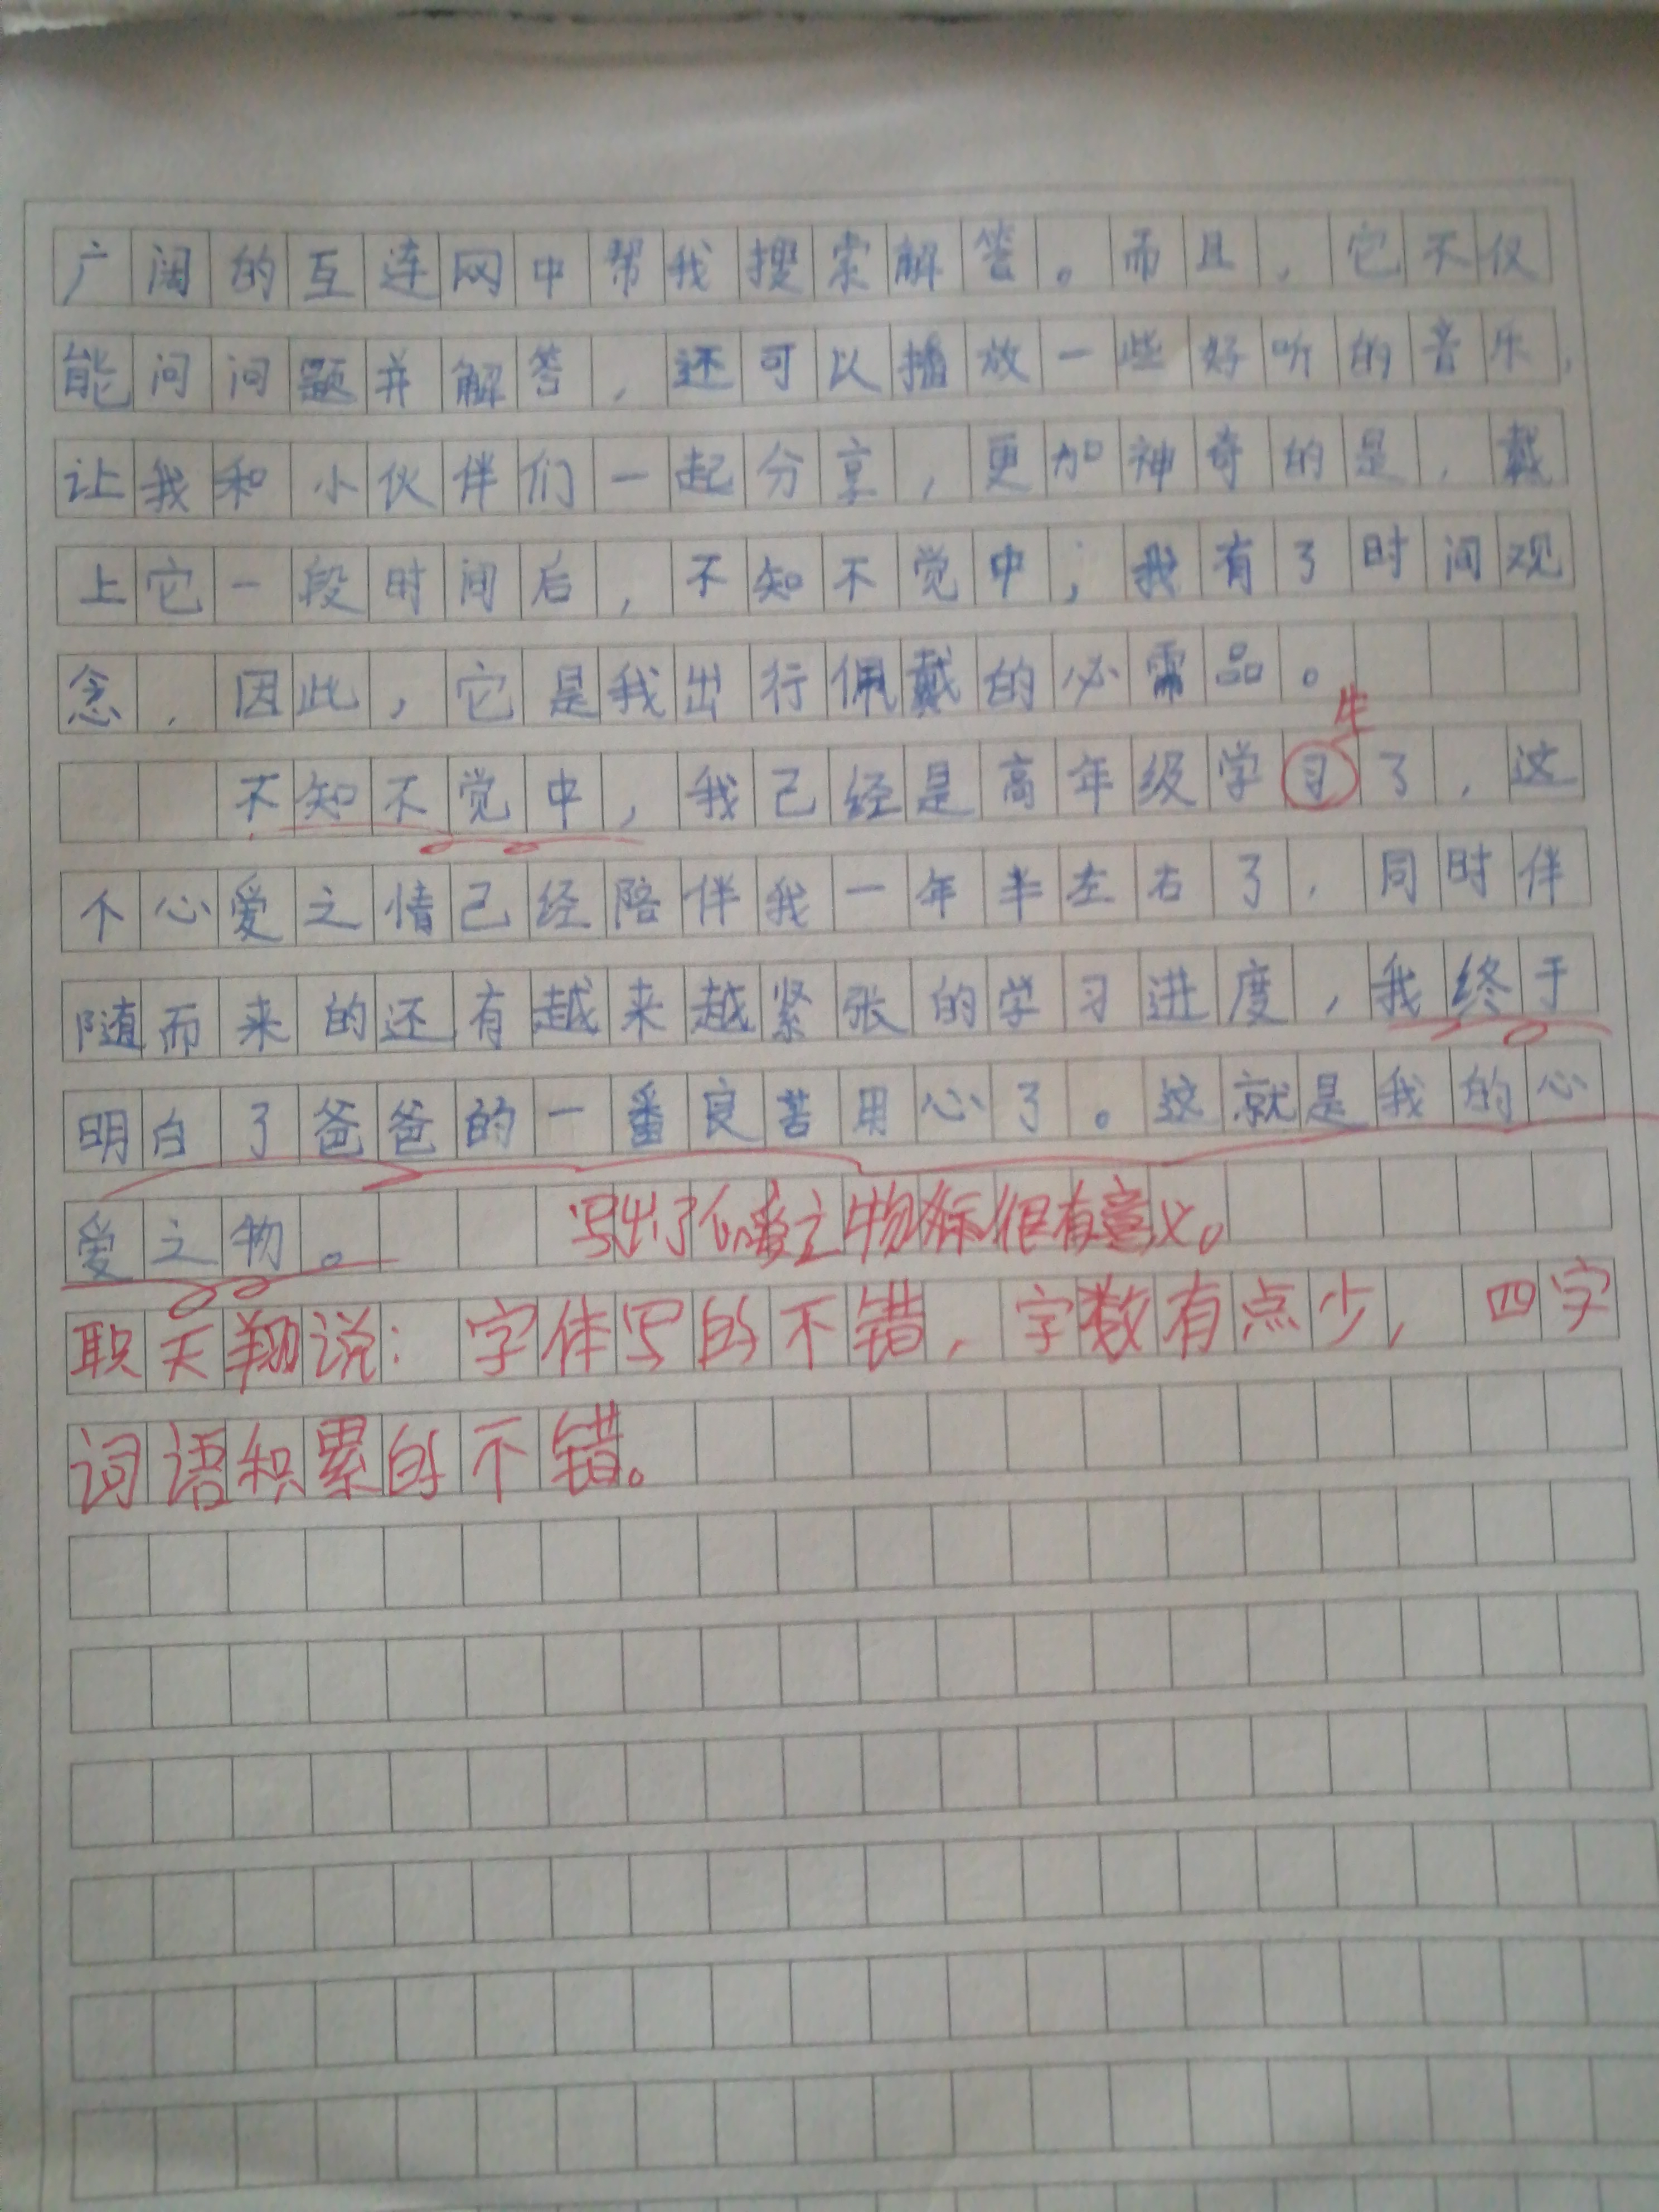 广阔的互连网中帮我搜索解答。而且，它不仅
能问问题并解答，还可以播放一些好听的音乐，
让我和小伙伴们一起分享，更加神奇的是，戴
上它一段时间后，不知不觉中，我有了时间观
念，因此，它是我出行佩戴的必需品。
生
不知不觉中，我己经是高年级学习了，这
个心爱之情己经陪伴我一年半左右了，同时伴
随而来的还有越来越紧张的学习进度，我终于
明白了爸爸的一番良苦用心了。这就是我的心
爱之物。
写出了心爱之物 很有意义。
职天翔说：字体写的不错，字数有点少，四字
词语积累的不错。